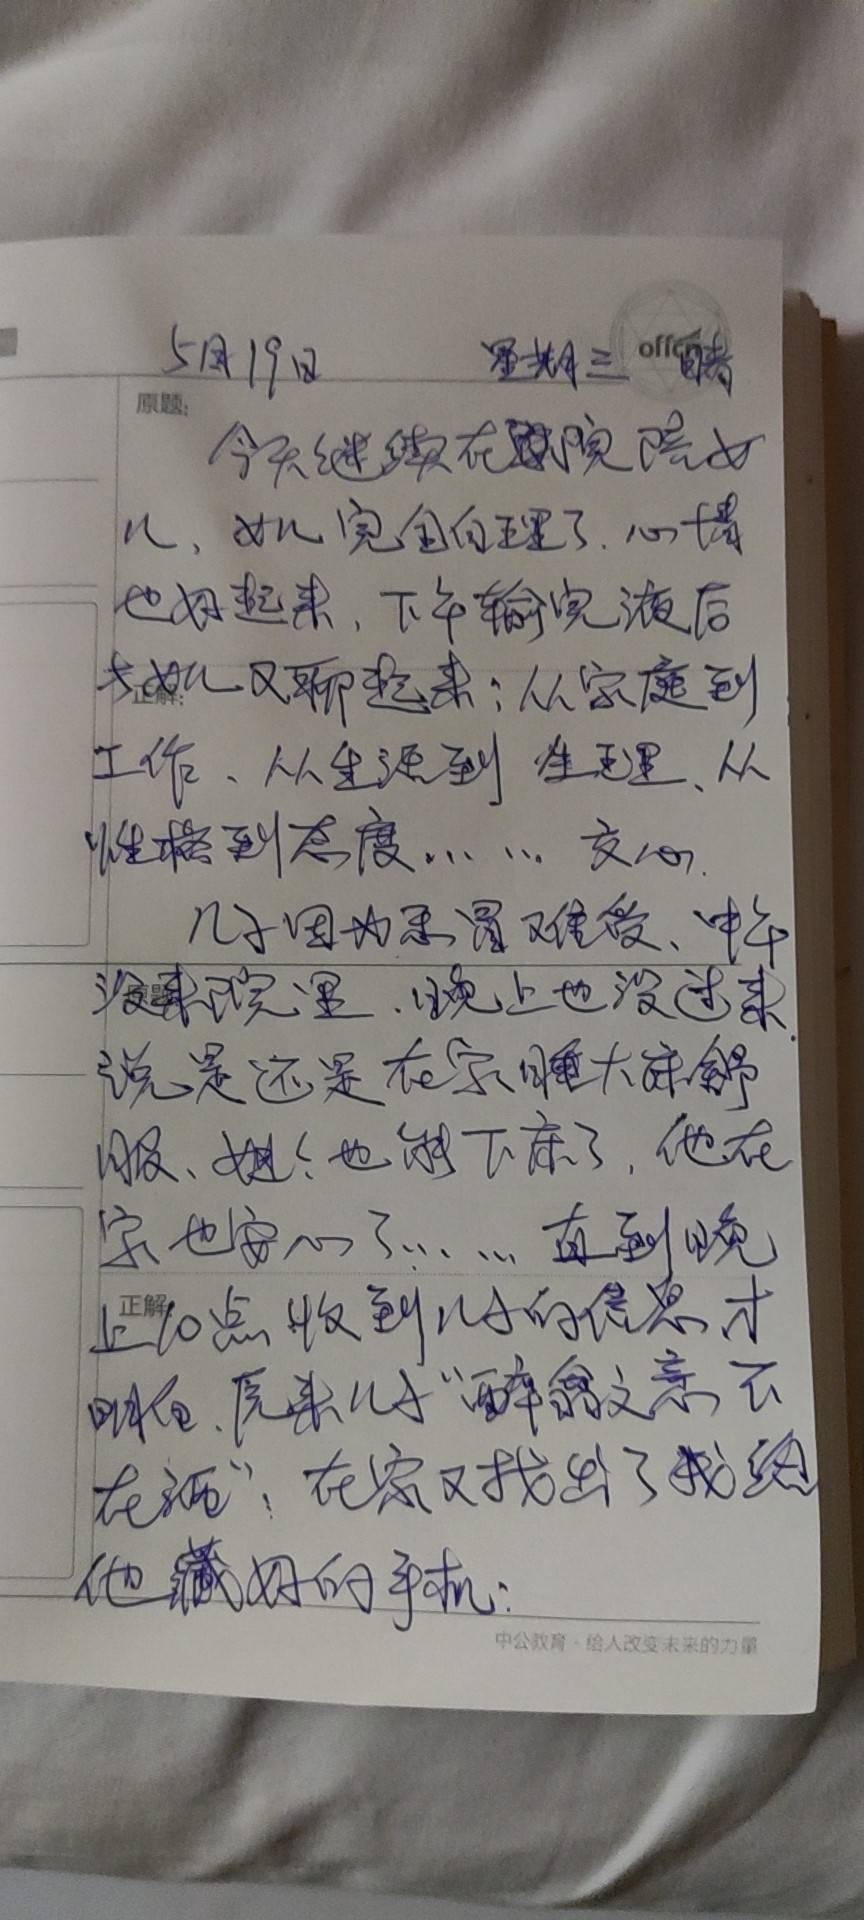 5月19日 星期三 offcn 晴
原题:
今天继续在医院陪女
儿、女儿完全自理了.心情
也好起来、下午输完液后
与女儿又聊起来:从家庭到
正解:
工作、从生源到生理、从
性格到态度……交心.
儿子因为感冒难受、中午
没来院里、晚上也没过来.
原题
说是还是在家睡大床舒
服、姐姐也能下床了,他在
家也安心了……直到晚
正解:
上10点收到儿子的信息才
明白、原来儿子“醉翁之意不
在酒”:在家又找出了我给
他藏好的手机:
中公教育·给人改变未来的力量